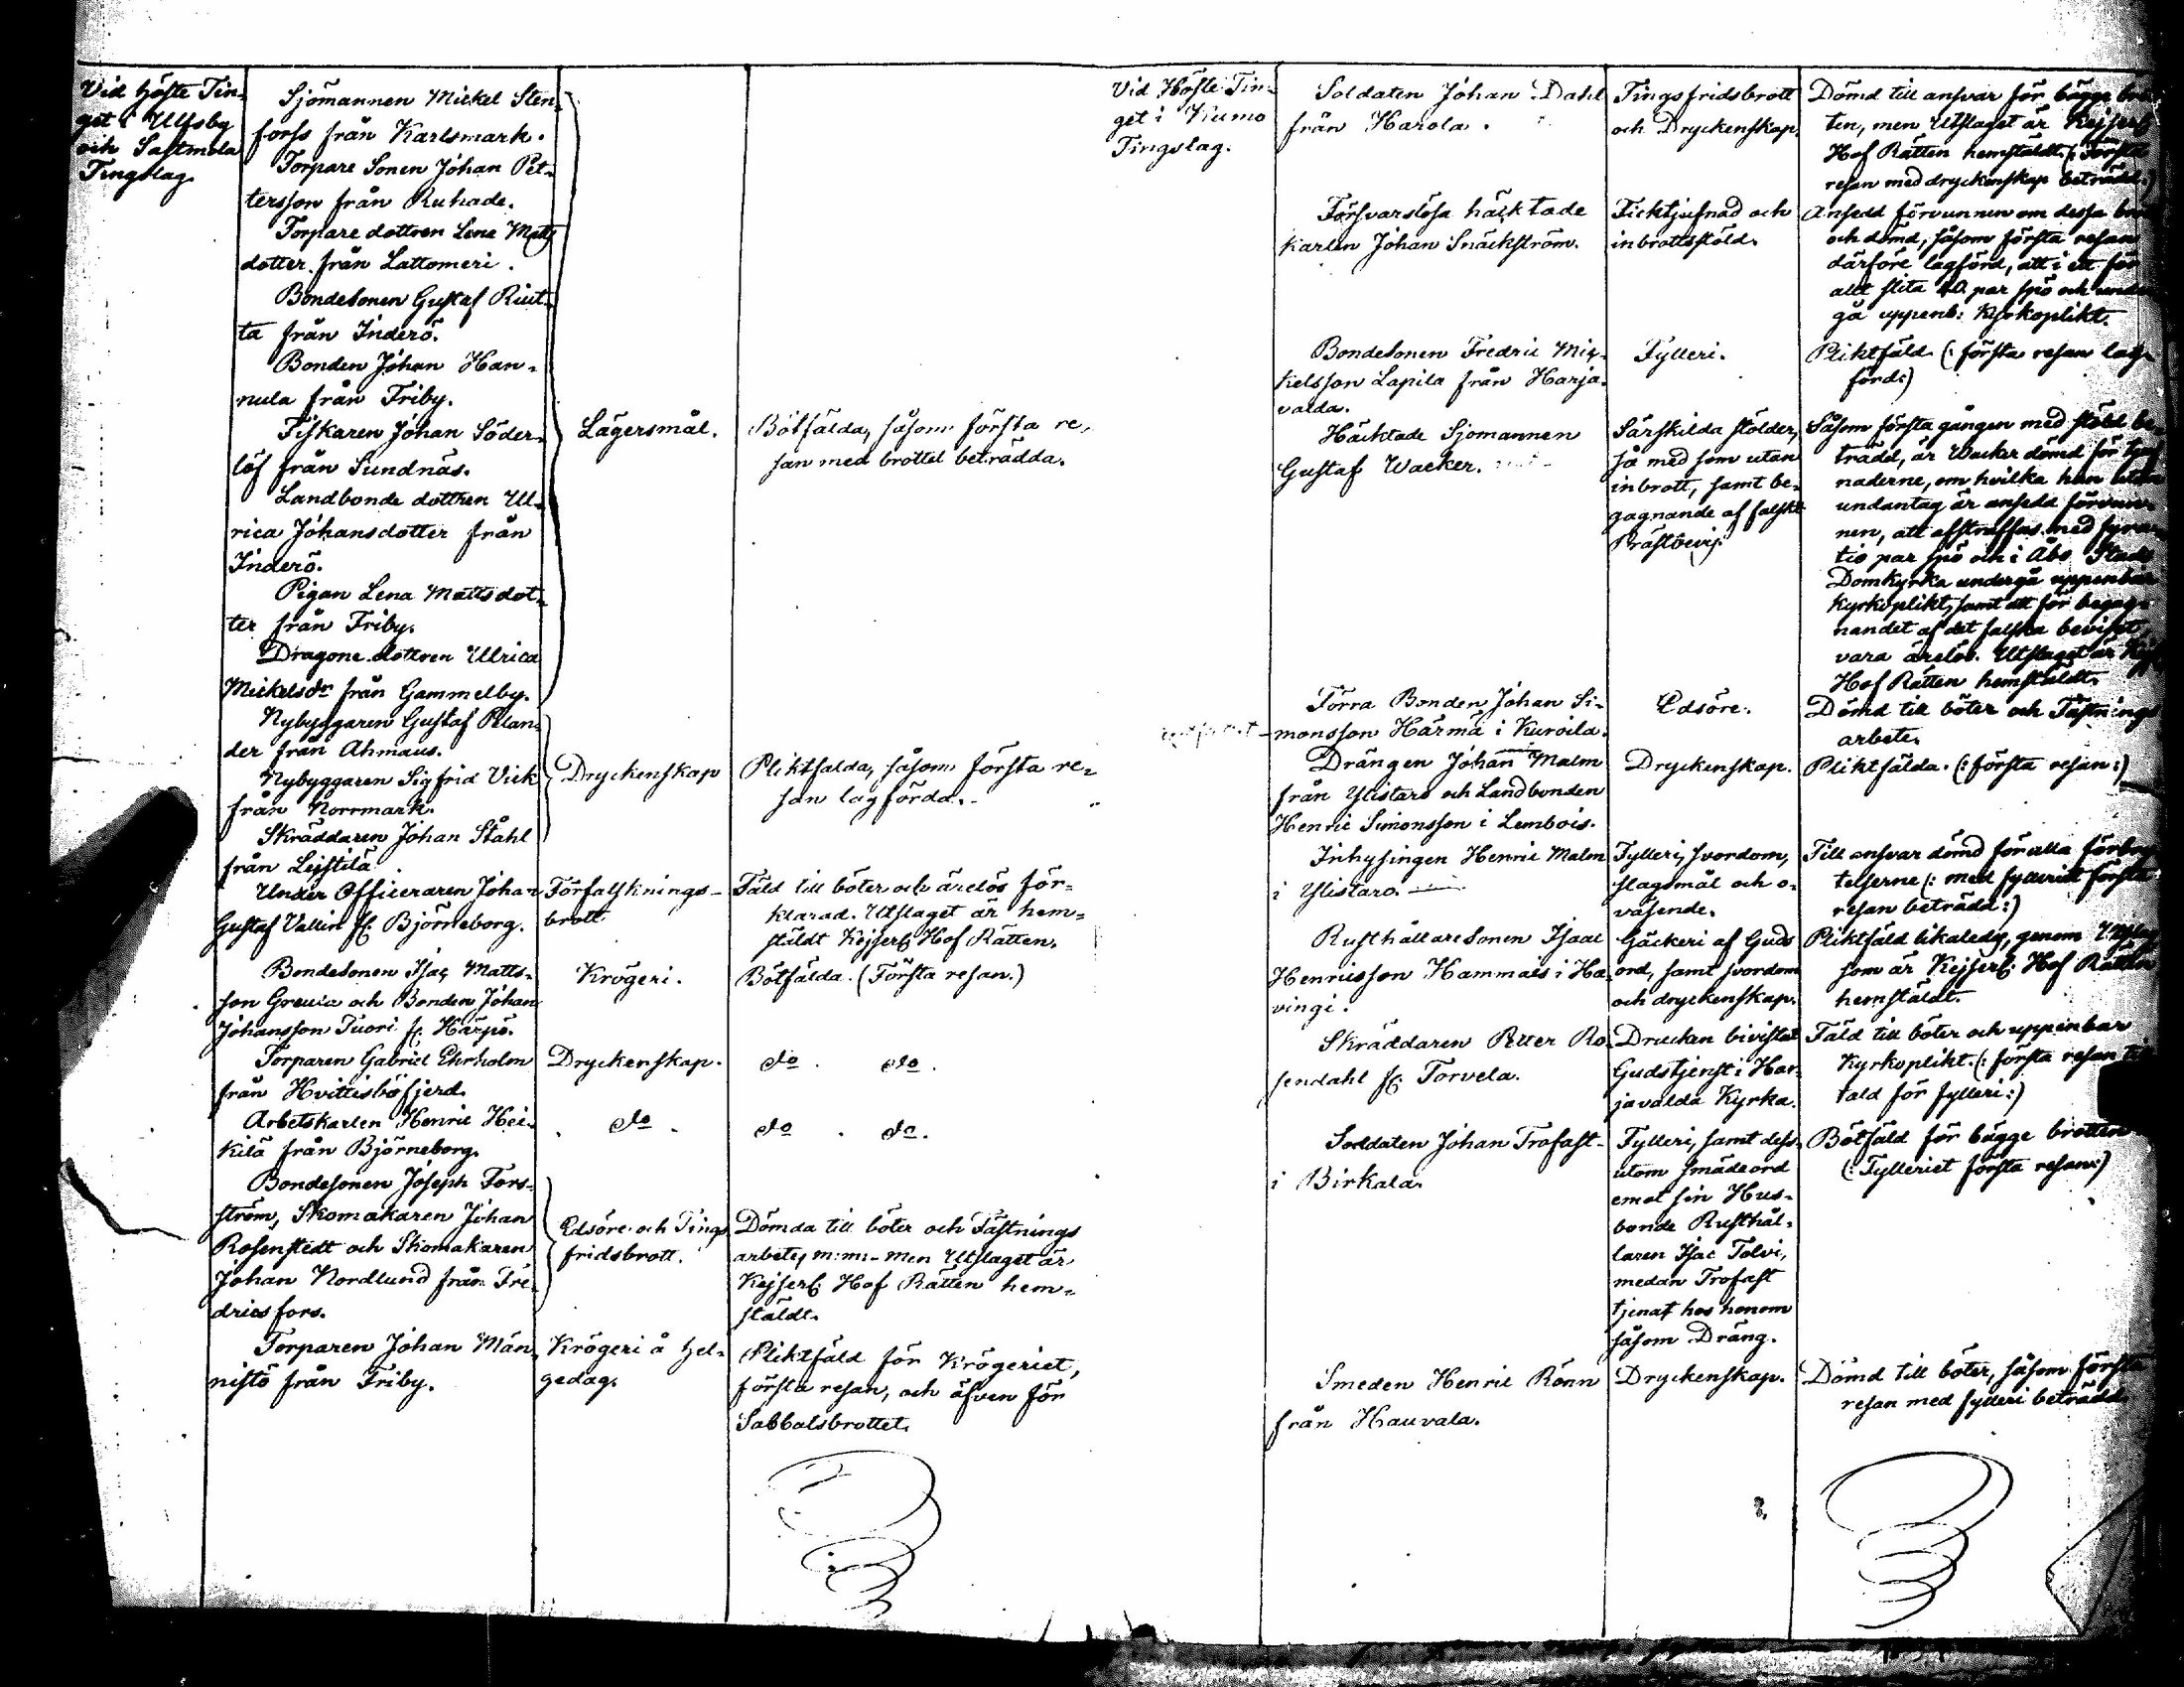 Vid Höste Tin-
get i Ulfsby
och Sastmola
Tingslag.
Sjömannen Mickel Sten-
forss från Karlsmark.
Torpare Sonen Johan Pet-
tersson från Ruhade.
Torpare dottren Lena Matts
dotter från Lattomeri.
Bondesonen Gustaf Riut-
ta från Inderö.
Bonden Johan Han-
nula från Friby.
Fiskaren Johan Söder-
löf från Sundnäs.
Landbonde dottren Ul-
rica Johansdotter från
Inderö.
Pigan Lena Mattsdot-
ter från Friby.
Dragone dottren Ulrica
Mickelsdr från Gammelby.
Lägersmål.
Bötfälda, såsom första re-
san med brottet beträdda.
Nybyggaren Gustaf Pelan-
der från Ahmaus.
Nybyggaren Sigfrid Vick
från Norrmark.
Skräddaren Johan Ståhl
från Leistilä.
Dryckenskap
Pliktfälda, såsom första re-
san lagförda.
Under Officeraren Johan
Gustaf Vallin fr. Björneborg.
Förfalsknings-
brott.
Fäld till böter och ärelös för-
klarad. Utslaget är hem-
stäldt Kejserl. Hof Rätten.
Bondesonen Isac Matts-
son Greula och Bonden Johan
Johansson Tuori fr. Harjo.
Krögeri.
Bötfälda. (Första resan.)
Torparen Gabriel Ehrholm
från Hvittisböfjerd.
Dryckenskap.
do. do.
Arbetskarlen Henric Hei-
kilä från Björneborg.
do.
do. do.
Bondesonen Joseph Fors-
ström, Skomakaren Johan
Rosenstedt och Skomakaren
Johan Nordlund från Fre-
dricsfors.
Edsöre och Tings
fridsbrott.
Dömda till böter och Fästnings
arbete, m:m:- men Utslaget är
Kejserl. Hof Rätten hem-
stäldt.
Torparen Johan Män-
nistö från Friby.
Krögeri å hel-
gedag.
Pliktfäld för Krögeriet,
första resan, och äfven för
Sabbatsbrottet.
Vid Höste Tin-
get i Kumo
Tingslag.
Soldaten Johan Dahl
från Harola.
Tingsfridsbrott
och Dryckenskap.
Dömd till ansvar för bägge brot-
ten, men Utslaget är Kejserl.
Hof Rätten hemstäldt. (: Första
resan med dryckenskap beträdd.)
Försvarslösa häcktade
karlen Johan Snäckström.
Ficktjufnad och
inbrottsstöld.
Ansedd förvunnen om dessa brott
och dömd, såsom första resan
därföre lagförd, att i ett för
allt slita 40. par spö och under
gå uppenb: Kyrkoplikt.
Bondesonen Fredric Mic-
kelsson Lapila från Harja-
valda.
Fylleri.
Pliktfäld. (: första resan lag-
förd:)
Häcktade Sjömannen
Gustaf Wacker.
Särskilda stölder,
så med som utan
inbrott, samt be-
gagnande af falskt
Prästbevis.
Såsom första gången med stöld be-
trädd, är Wacker dömd för tjuf-
naderne, om hvilka han utan
undantag är ansedd förvun-
nen, att afstraffas med fyra-
tio par spö och i Åbo Stads
Domkyrka undergå uppenbar
Kyrkoplikt, samt att för begag-
nandet af det falska beviset,
vara ärelös. Utslaget är Kejs.
Hof Rätten hemstäldt.
Förra Bonden Johan Si-
monsson Härmä i Kuroila.
Edsöre.
Dömd till böter och Fästnings
arbete.
Drängen Johan Malm
från Ylistaro och Landbonden
Henric Simonsson i Lembois.
Dryckenskap.
Pliktfälda. (: första resan:)
Inhysingen Henric Malm
i Ylistaro.
Fylleri, svordom,
slagsmål och o-
väsende.
Till ansvar dömd för alla förbry-
telserne (: med fylleriet första
resan beträdd:)
Rusthållaresonen Isaac
Henricsson Hammais i Ha-
vingi.
Gäckeri af Guds
ord, samt svordom
och dryckenskap.
Pliktfäld likaledes, genom Utslag
som är Kejserl. Hof Rätten
hemstäldt.
Skräddaren Petter Ro-
sendahl fr. Torvela.
Drucken bivistat
Gudstjenst i Har-
javalda Kyrka.
Fäld till böter och uppenbar
Kyrkoplikt. (: första resan til-
tald för fylleri:)
Soldaten Johan Trofast
i Birkala.
Fylleri, samt dess-
utom smädeord
emot sin Hus-
bonde Rusthål-
laren Isac Tolvi,
medan Trofast
tjenat hos honom
såsom Dräng.
Bötfäld för bägge brotten
(: Fylleriet första resan:)
Smeden Henric Rönn
från Hauvala.
Dryckenskap.
Dömd till böter, såsom första
resan med fylleri beträdd